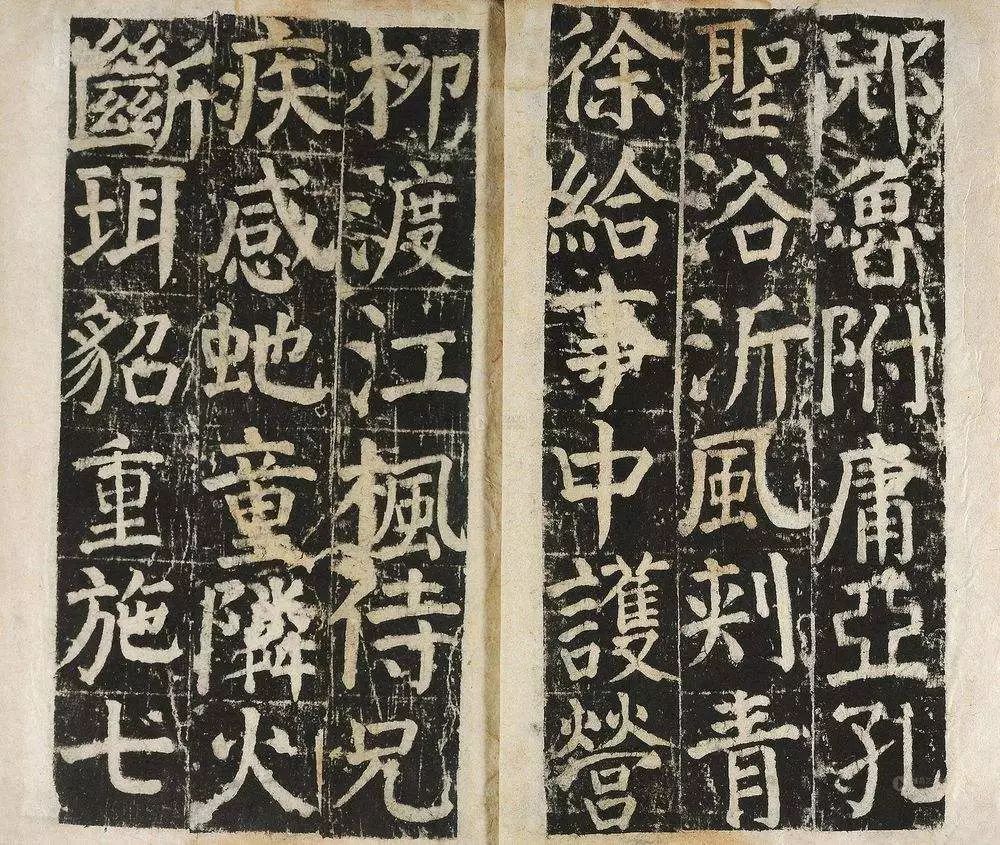 郳魯附庸亞孔
聖谷沂風刾青
徐給事中護營
柳渡江楓侍兄
疾感虵童隣火
斷珥貂重施弋